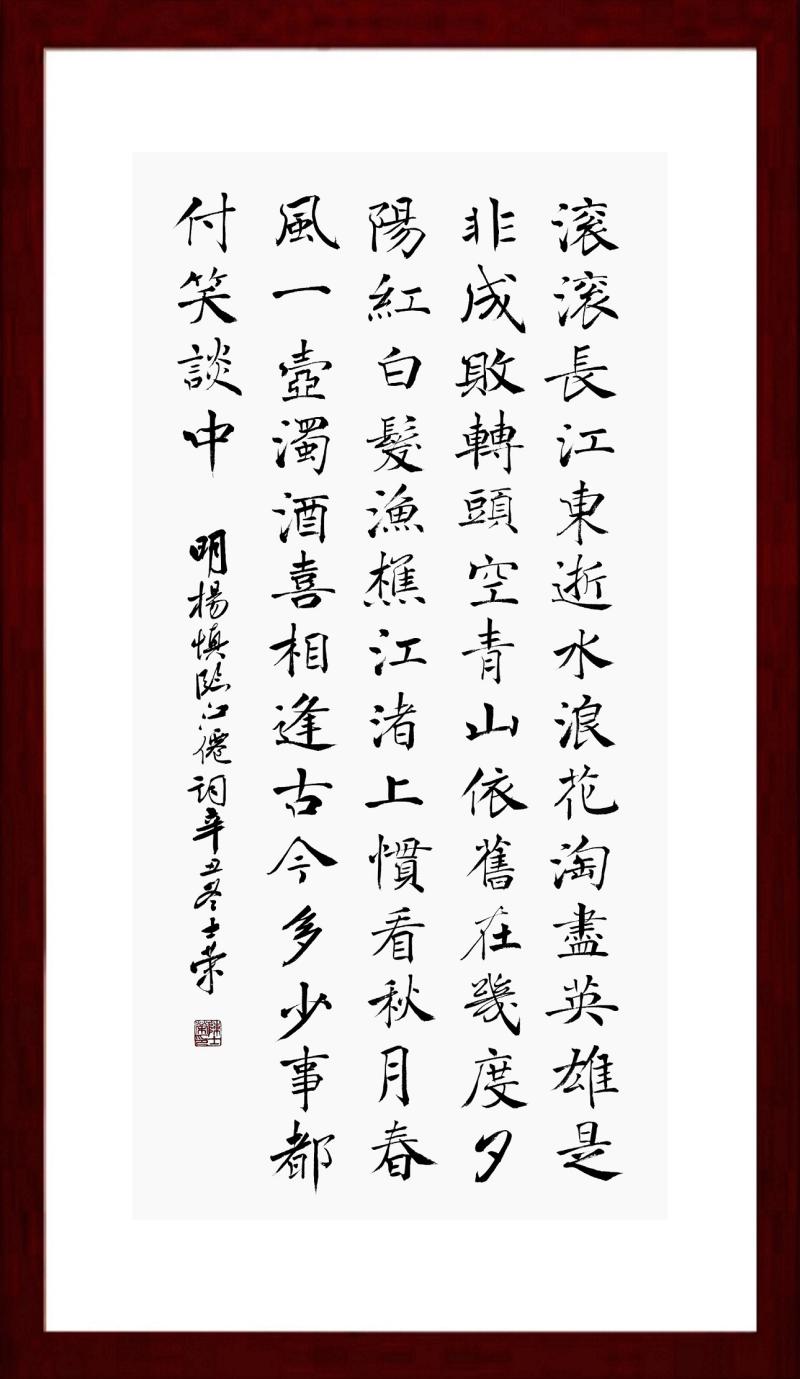 滚滚長江東逝水浪花淘盡英雄是
非成敗轉頭空青山依舊在幾度夕
陽紅白髮漁樵江渚上慣看秋月春
風一壺濁酒喜相逢古今多少事都
付笑談中
明楊慎臨江僊詞辛丑冬士榮